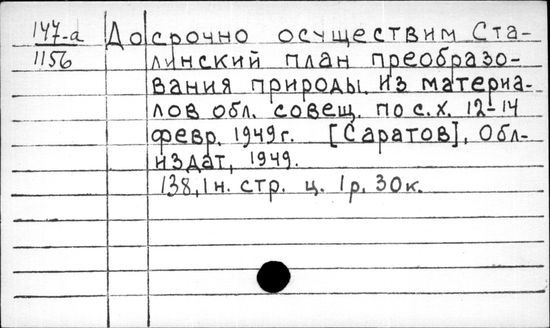 147-а Досрочно осуществим Ста-
1156 линский план преобразо-
вания природы. Из материа-
лов обл. совещ. по с.х. 12-14
февр. 1949 г. [Саратов], Обл-
издат, 1949.
138,1 н. стр. ц. 1 р. 30 к.